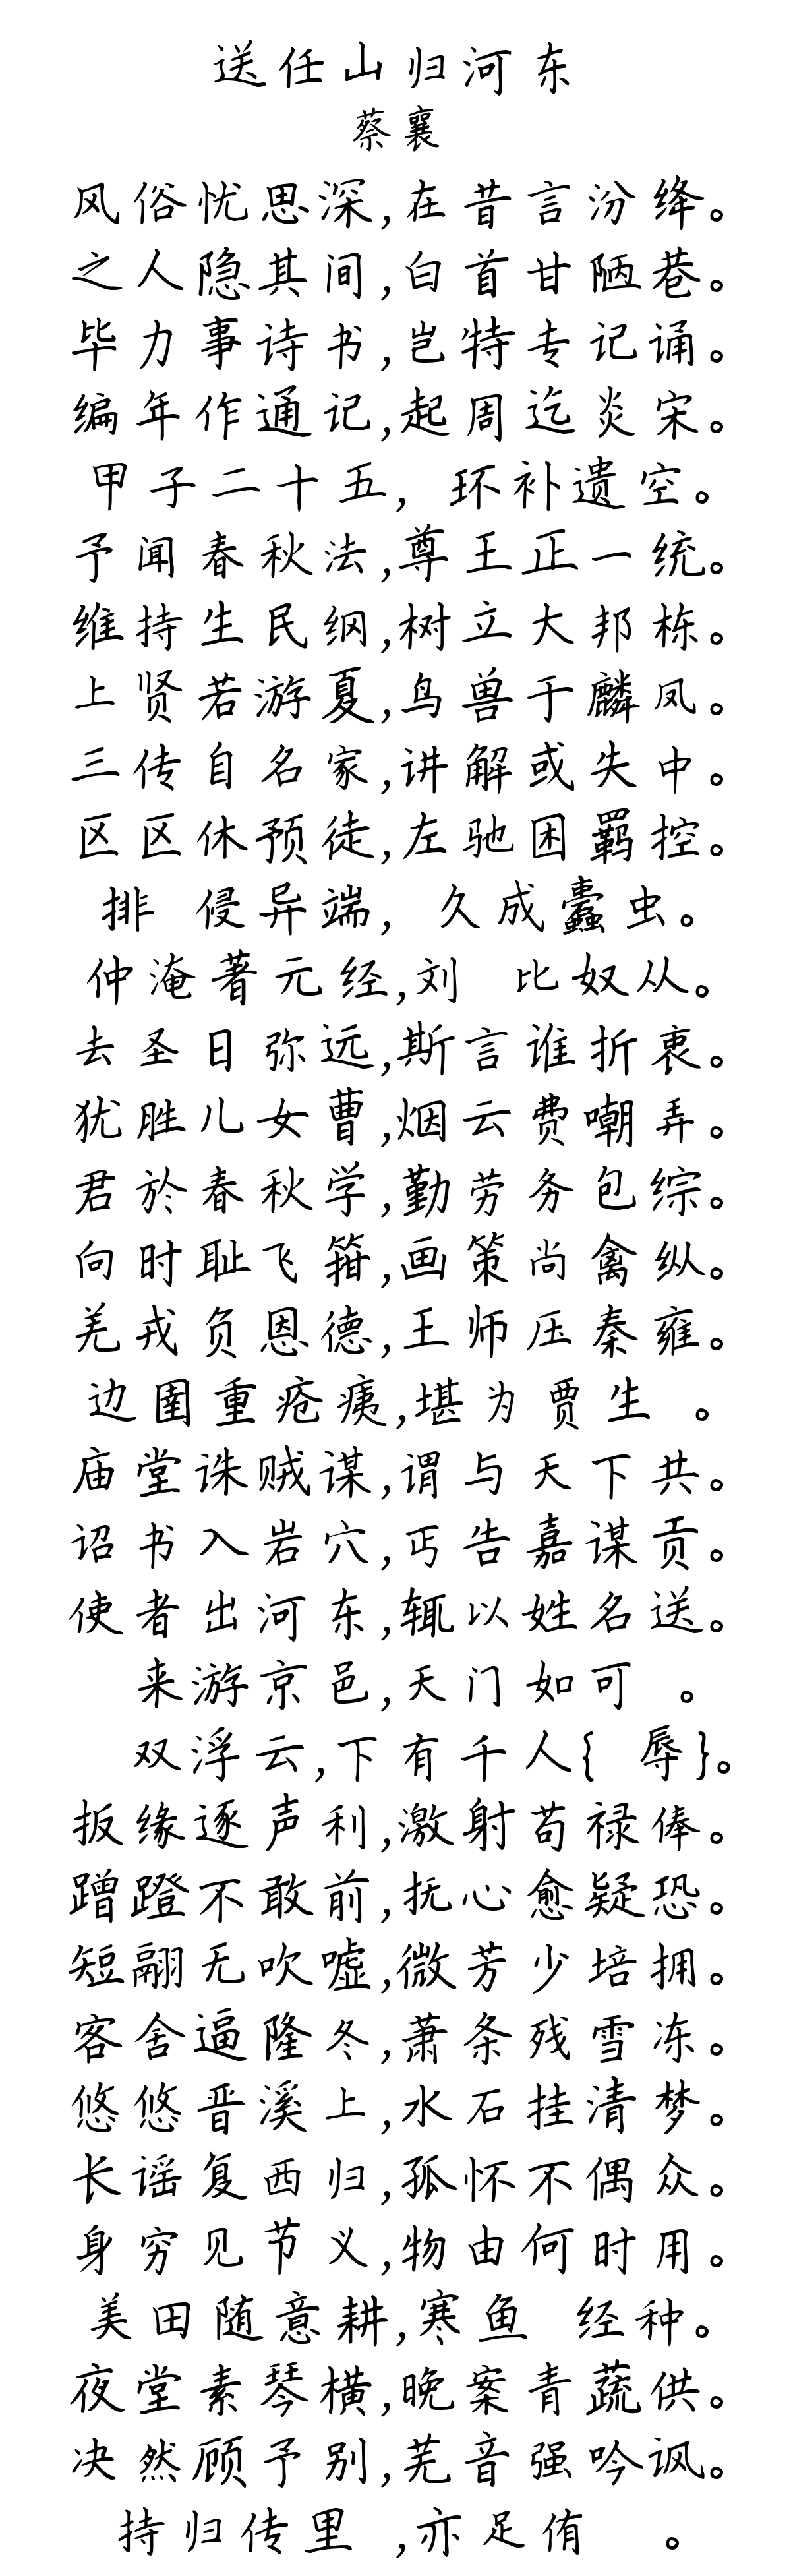 送任山归河东
蔡襄
风俗忧思深,在昔言汾绛。
之人隐其间,白首甘陋巷。
毕力事诗书,岂特专记诵。
编年作通记,起周迄炎宋。
甲子二十五,环补遗空。
予闻春秋法,尊王正一统。
维持生民纲,树立大邦栋。
上贤若游夏,鸟兽于麟凤。
三传自名家,讲解或失中。
区区休预徒,左驰困羁控。
排 侵异端,久成蠹虫。
仲淹著元经,刘 比奴从。
去圣日弥远,斯言谁折衷。
犹胜儿女曹,烟云费嘲弄。
君於春秋学,勤劳务包综。
向时耻飞箝,画策尚禽纵。
羌戎负恩德,王师压秦雍。
边圉重疮痍,堪为贾生 。
庙堂诛贼谋,谓与天下共。
诏书入岩穴,丐告嘉谋贡。
使者出河东,辄以姓名送。
来游京邑,天门如可 。
双浮云,下有千人{ 辱}。
扳缘逐声利,激射苟禄俸。
蹭蹬不敢前,抚心愈疑恐。
短翮无吹嘘,微芳少培拥。
客舍逼隆冬,萧条残雪冻。
悠悠晋溪上,水石挂清梦。
长谣复西归,孤怀不偶众。
身穷见节义,物由何时用。
美田随意耕,寒鱼 经种。
夜堂素琴横,晚案青蔬供。
决然顾予别,芜音强吟讽。
持归传里 ,亦足侑 。